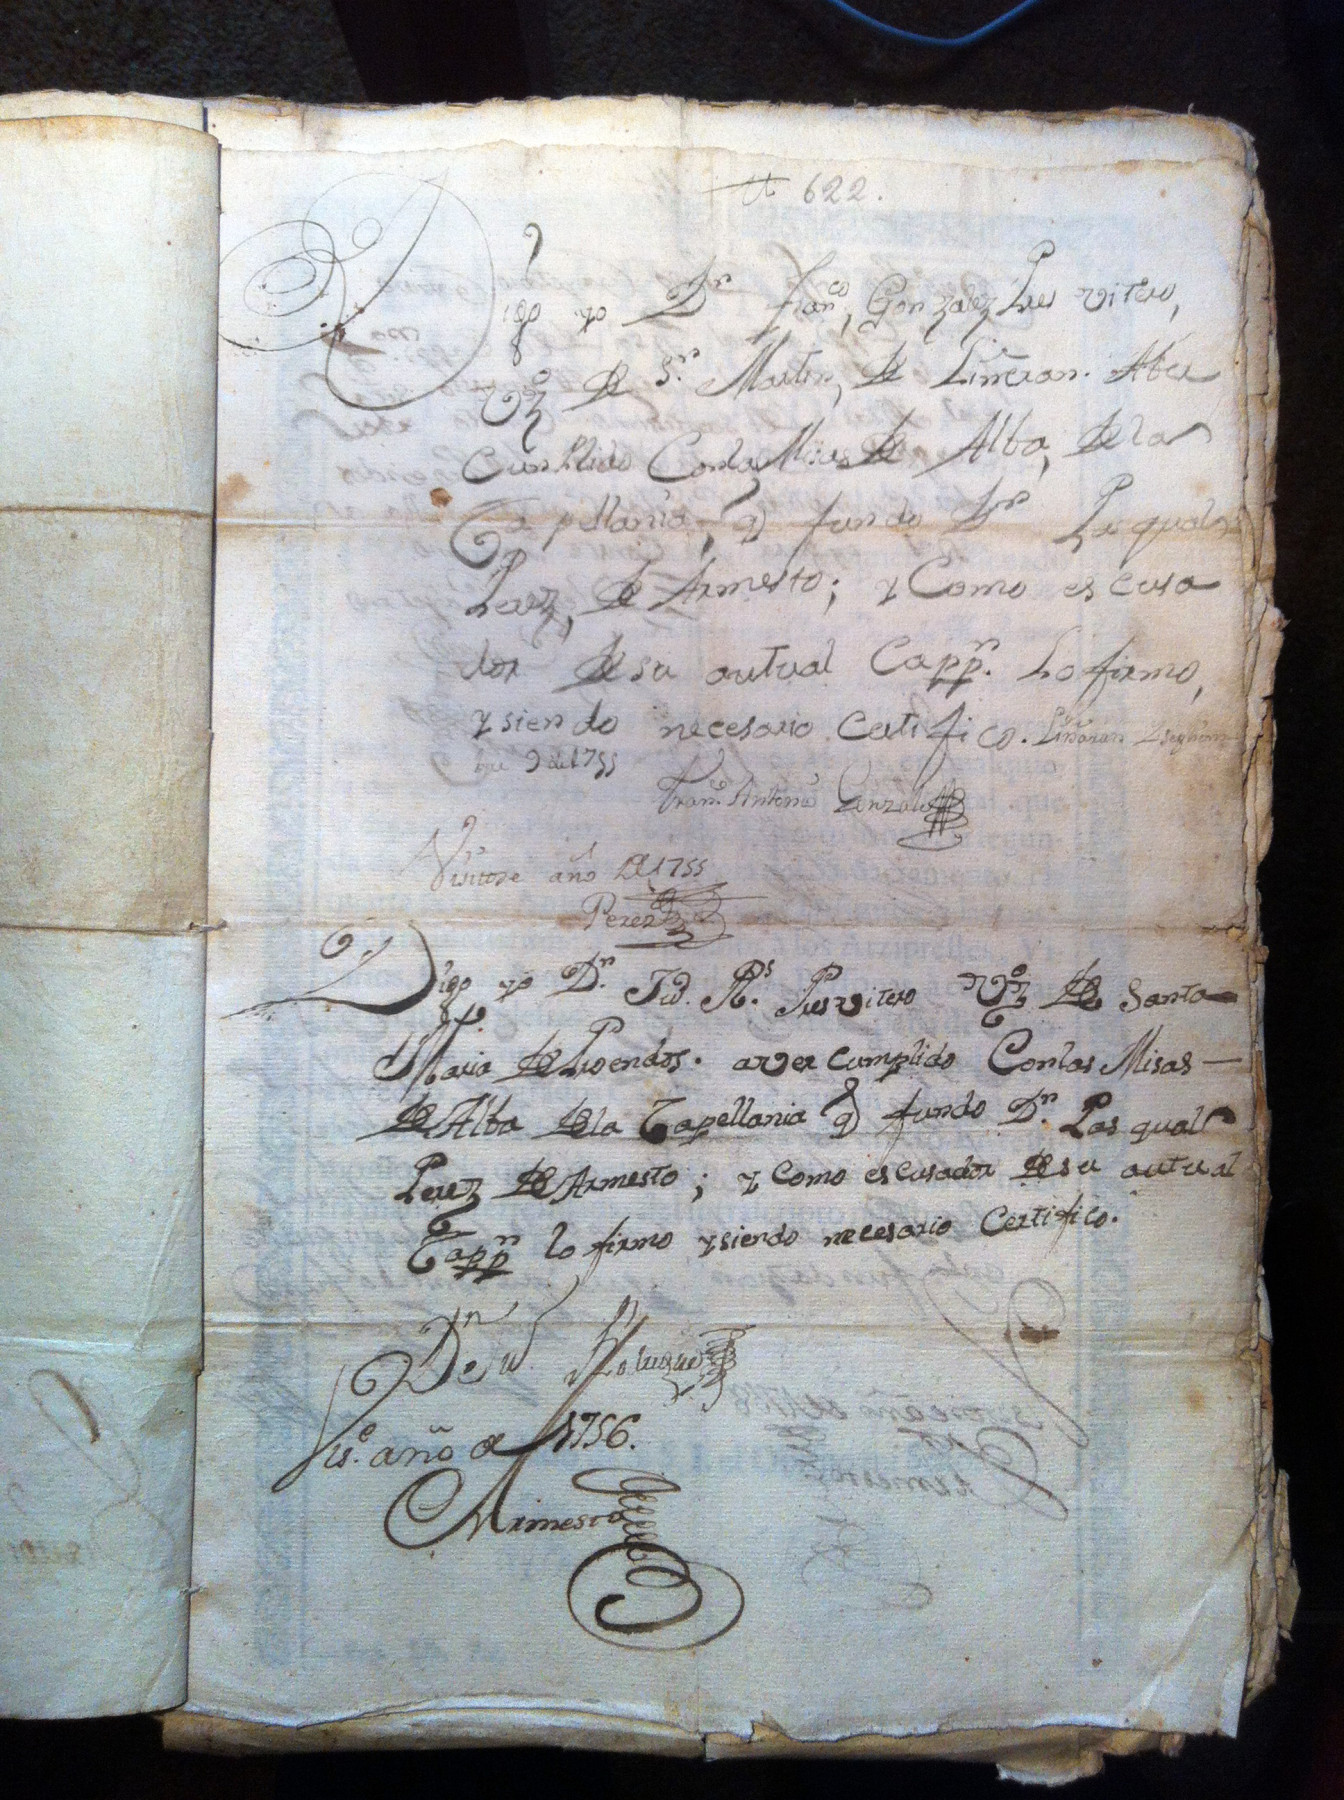 622.
Digo yo Dn franco, Gonzalez Presvitero,
Vzo de Sn. Martin, de Liñeran. Aber
Cumplido Conlas Misas de Alba, dela
Capellania, q fundo Dn Pasqual
Perez, de Armesto; y Como escusa
dor desu autual Capp.n lo firmo,
y siendo necesario Certifico. Liñaran
bre 9 de 1755
Franco. Antonio Gonzalez
Visitose año de 1755
Perez
Digo yo Dn. Rs. Presvitero Vzo de Santa
Maria de Proendos. aver cumplido Conlas Misas
de Alba dela Capellania q fundo Dn. Pasqual
Perez de Armesto; y como escusador desu autual
Cappn lo firmo y siendo necesario Certifico.
Dn Rodriguez
Vise. año de 1756.
Armesto